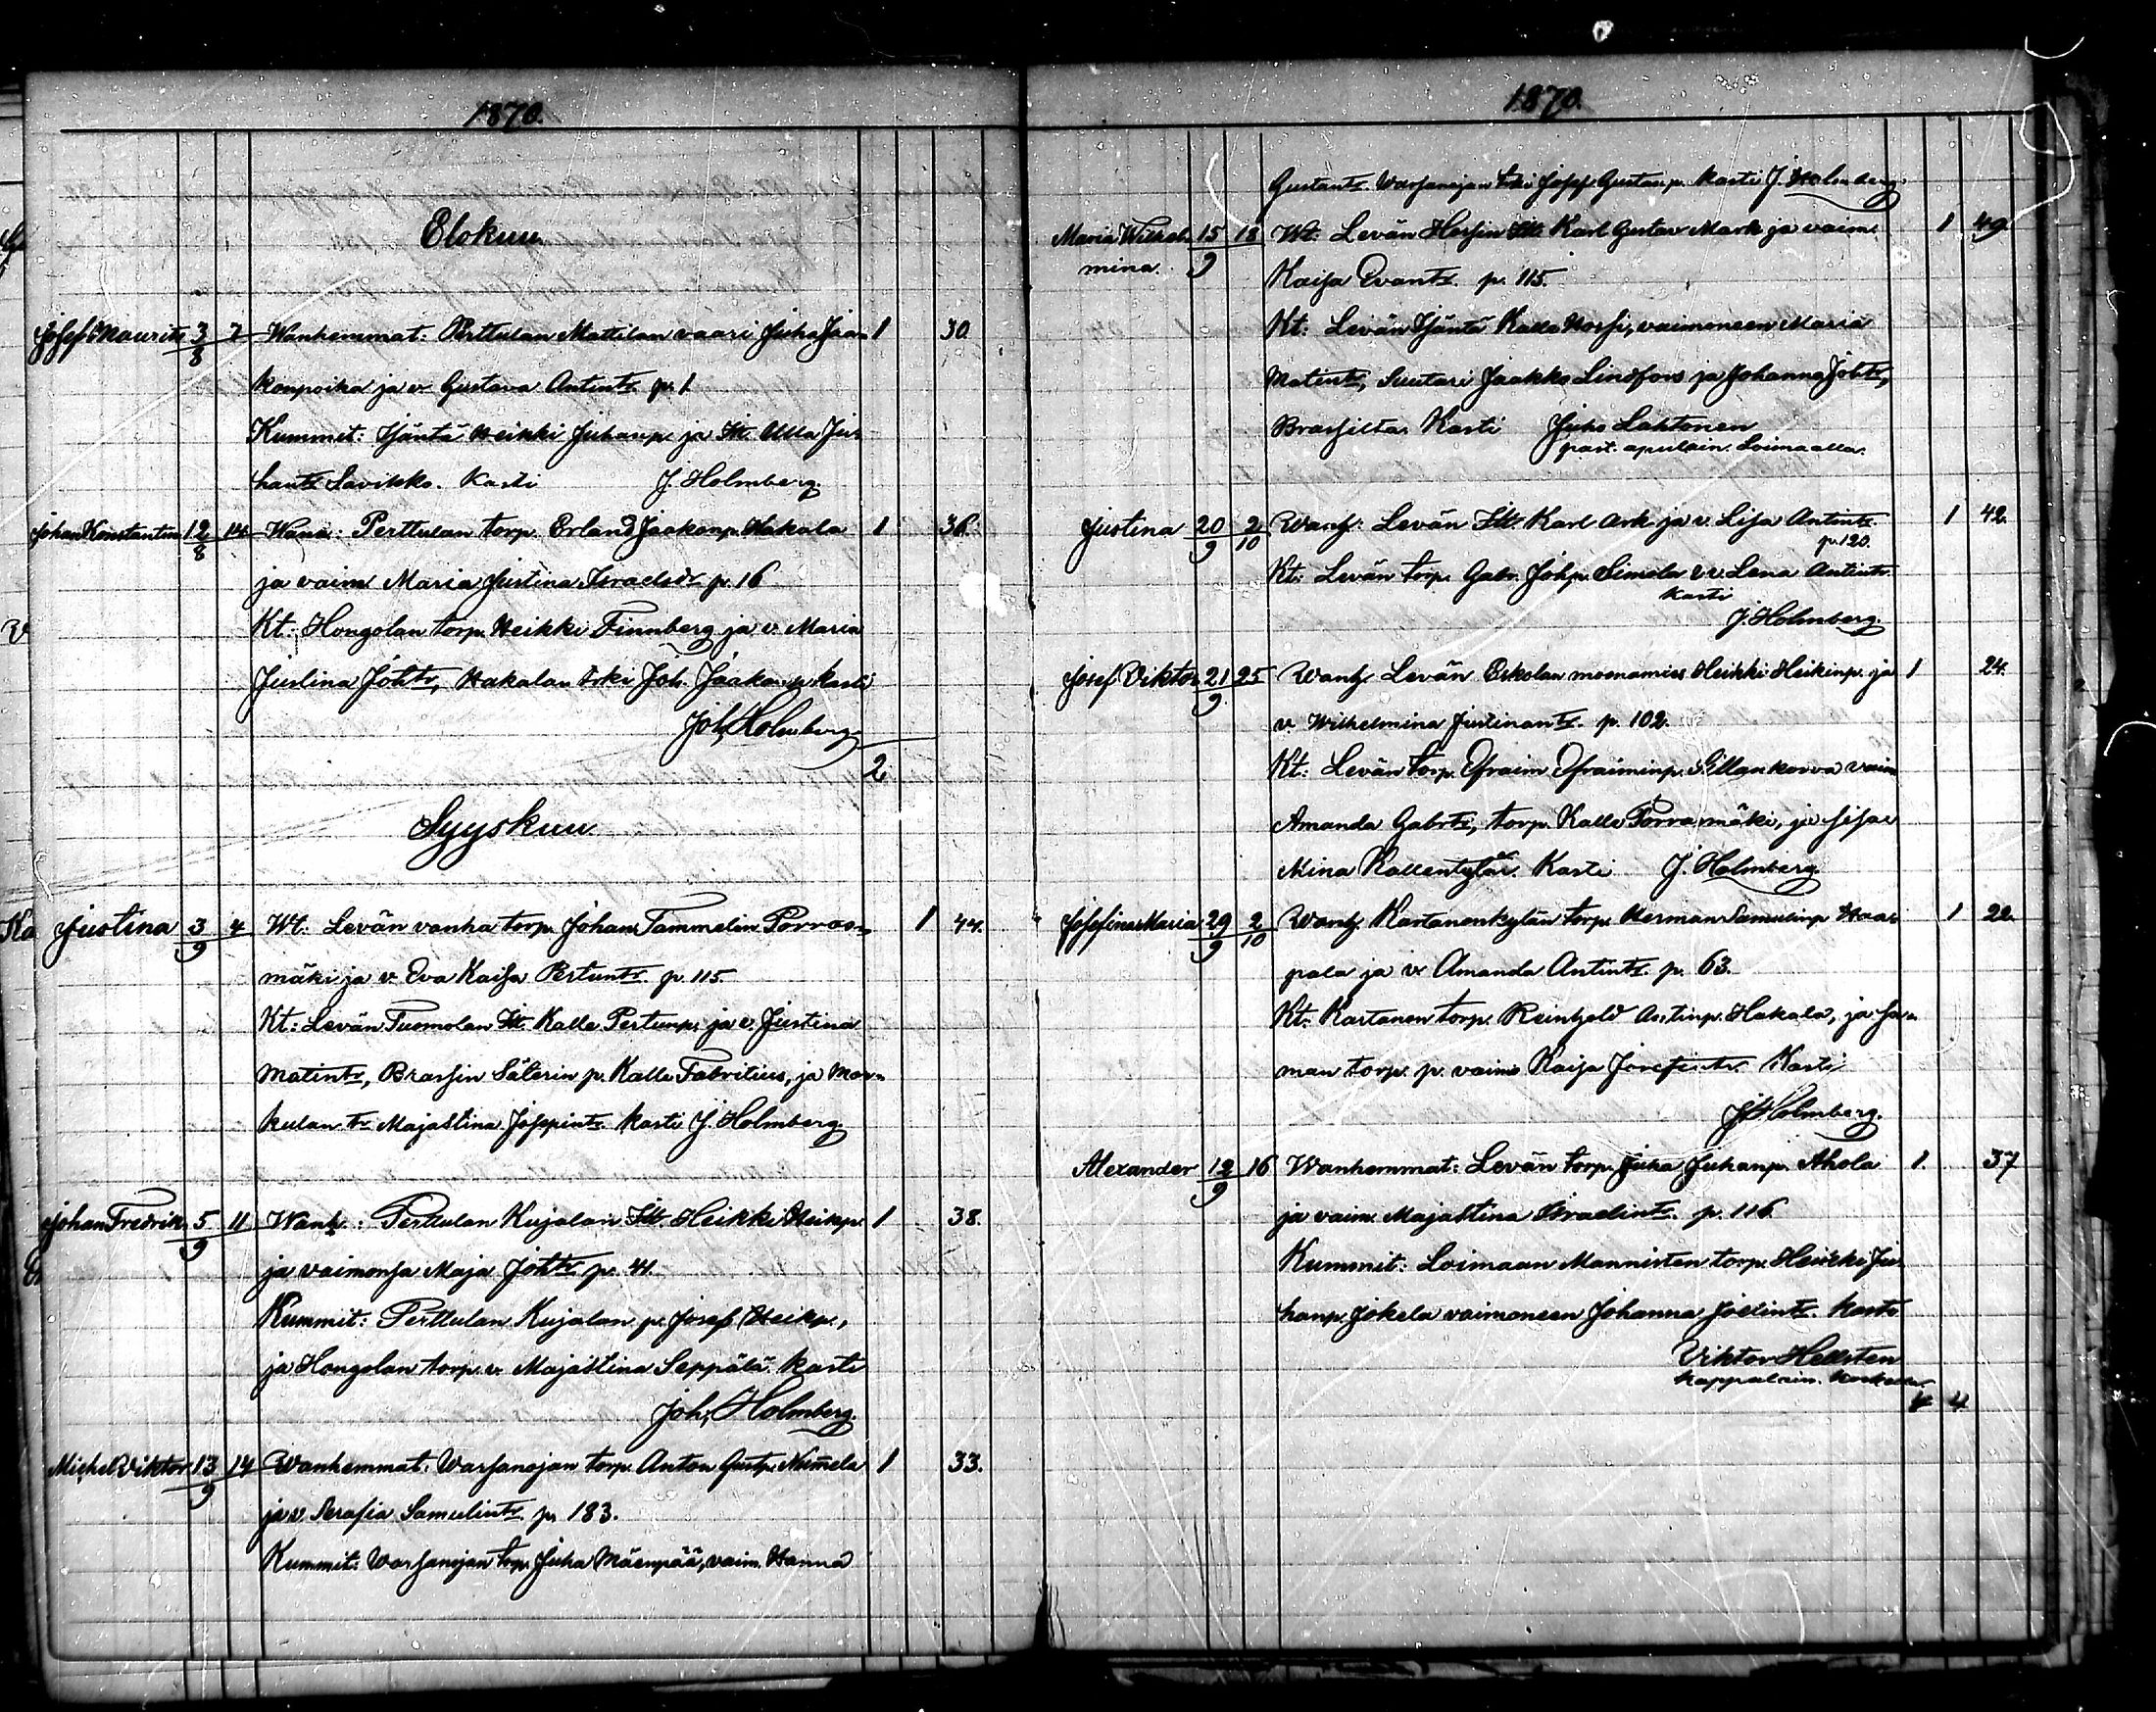 1870.
Elokuu
Josef Maurits 3/8 7 Wanhemmat: Perttulan Mattilan vaari Juha Jaa- 1 30
konpoika ja v. Gustava Antintr. p. 1
Kummit: Isäntä Heikki Juhanp. ja Itll. Ulla Ju-
hantr Savikko. Kasti J. Holmberg.
Johan Konstantin 12/8 14 Wana: Perttulan torp. Erland Jaakonp. Hakala 1 36.
ja vaim. Maria Justina Israelsdr p. 16
Kt: Hongolan torp. Heikki Finnberg ja v. Maria
Justina Johtr, Hakalan trki Joh. Jaakonp. Kasti
Joh. Holmberg
2
Syyskuu
Justina 3/9 4 Wt: Levän vanha torp. Johan Tammelin Porras- 1 44.
mäki ja v. Eva Kaisa Pertuntr. p. 115.
Kt: Levän Tuomolan Itll. Kalle Pertunp. ja v. Justina
Matintr, Brassin Säterin p. Kalle Fabritius, ja Mar-
kulan tr Majastina Josppintr. Kasti J. Holmberg
Johan Fredrik 5/9 11 Wanh.: Perttulan Kujalan Itll. Heikki Heikp. 1 38.
ja vaimonsa Maja Johtr p. 41.
Kummit: Perttulan Kujalan p. Josef Heikp.,
ja Hongolan torp. v. Majastina Seppälä. Kasti
Joh. Holmberg.
Michel Viktor 13/9 14 Wanhemmat: Warsanojan torp. Anton Gustp. Numela 1 33.
ja v. Serafia Samulintr. p. 183.
Kummit: Warsanojan torp. Juha Mäenpää, vaim. Hanna
1870.
Gustantr. Warsanojan trki Josef Gustavp. Kasti J. Holmberg.
Maria Wilhel- 15/9 18 Wt: Levän Hossin Itll. Karl Gustav Mark ja vaim. 1 49.
mina. Kaisa Evantr. p. 115.
Kt: Levän Isäntä Kalle Hossi, vaimoneen Maria
Matintr, Suutari Jaakko Lindfors ja Johanna Johtr,
Brassilta. Kasti Juho Lahtonen
past. apulain. Loimaalla.
Justina 20/9 2/10 Wanh: Levän Itll. Karl Ark ja v. Lisa Antintr. 1 42.
p. 120.
Kt: Levän torp. Gabr. Johp. Simola v. Lena Antintr.
Kasti
J. Holmberg.
Josef Viktor 21/9 25 Wanh Levän Eskolan moonamies Heikki Heikinp. ja 1 24.
v. Wilhelmina Justinantr. p. 102.
Kt: Levän torp. Efraim Efraiminp. Sillankorva vaim
Amanda Gabrtr, torp. Kalle Porrasmäki, ja sisar
Mina Kallentytär. Kasti J. Holmberg.
Josefina Maria 29/9 2/10 Wanh. Kartanonkylän torp. Herman Samulinp Haa- 1 22.
pala ja v. Amanda Antintr. p. 63.
Kt. Kartanon torp. Reinhold Antinp. Hakala, ja sa-
man torp. p. vaimo Kaisa Josefintr. Kasti
J. Holmberg.
Alexander 12/9 16 Wanhemmat: Levän torp. Juha Juhanp. Ahola 1. 37
ja vaim. Majastina Israelintr. p. 116.
Kummit: Loimaan Mannisten torp. Heikki Ju-
hanp. Jokela vaimoneen Johanna Joelintr. Kasti
Viktor Hellsten
kappalain.
4 4